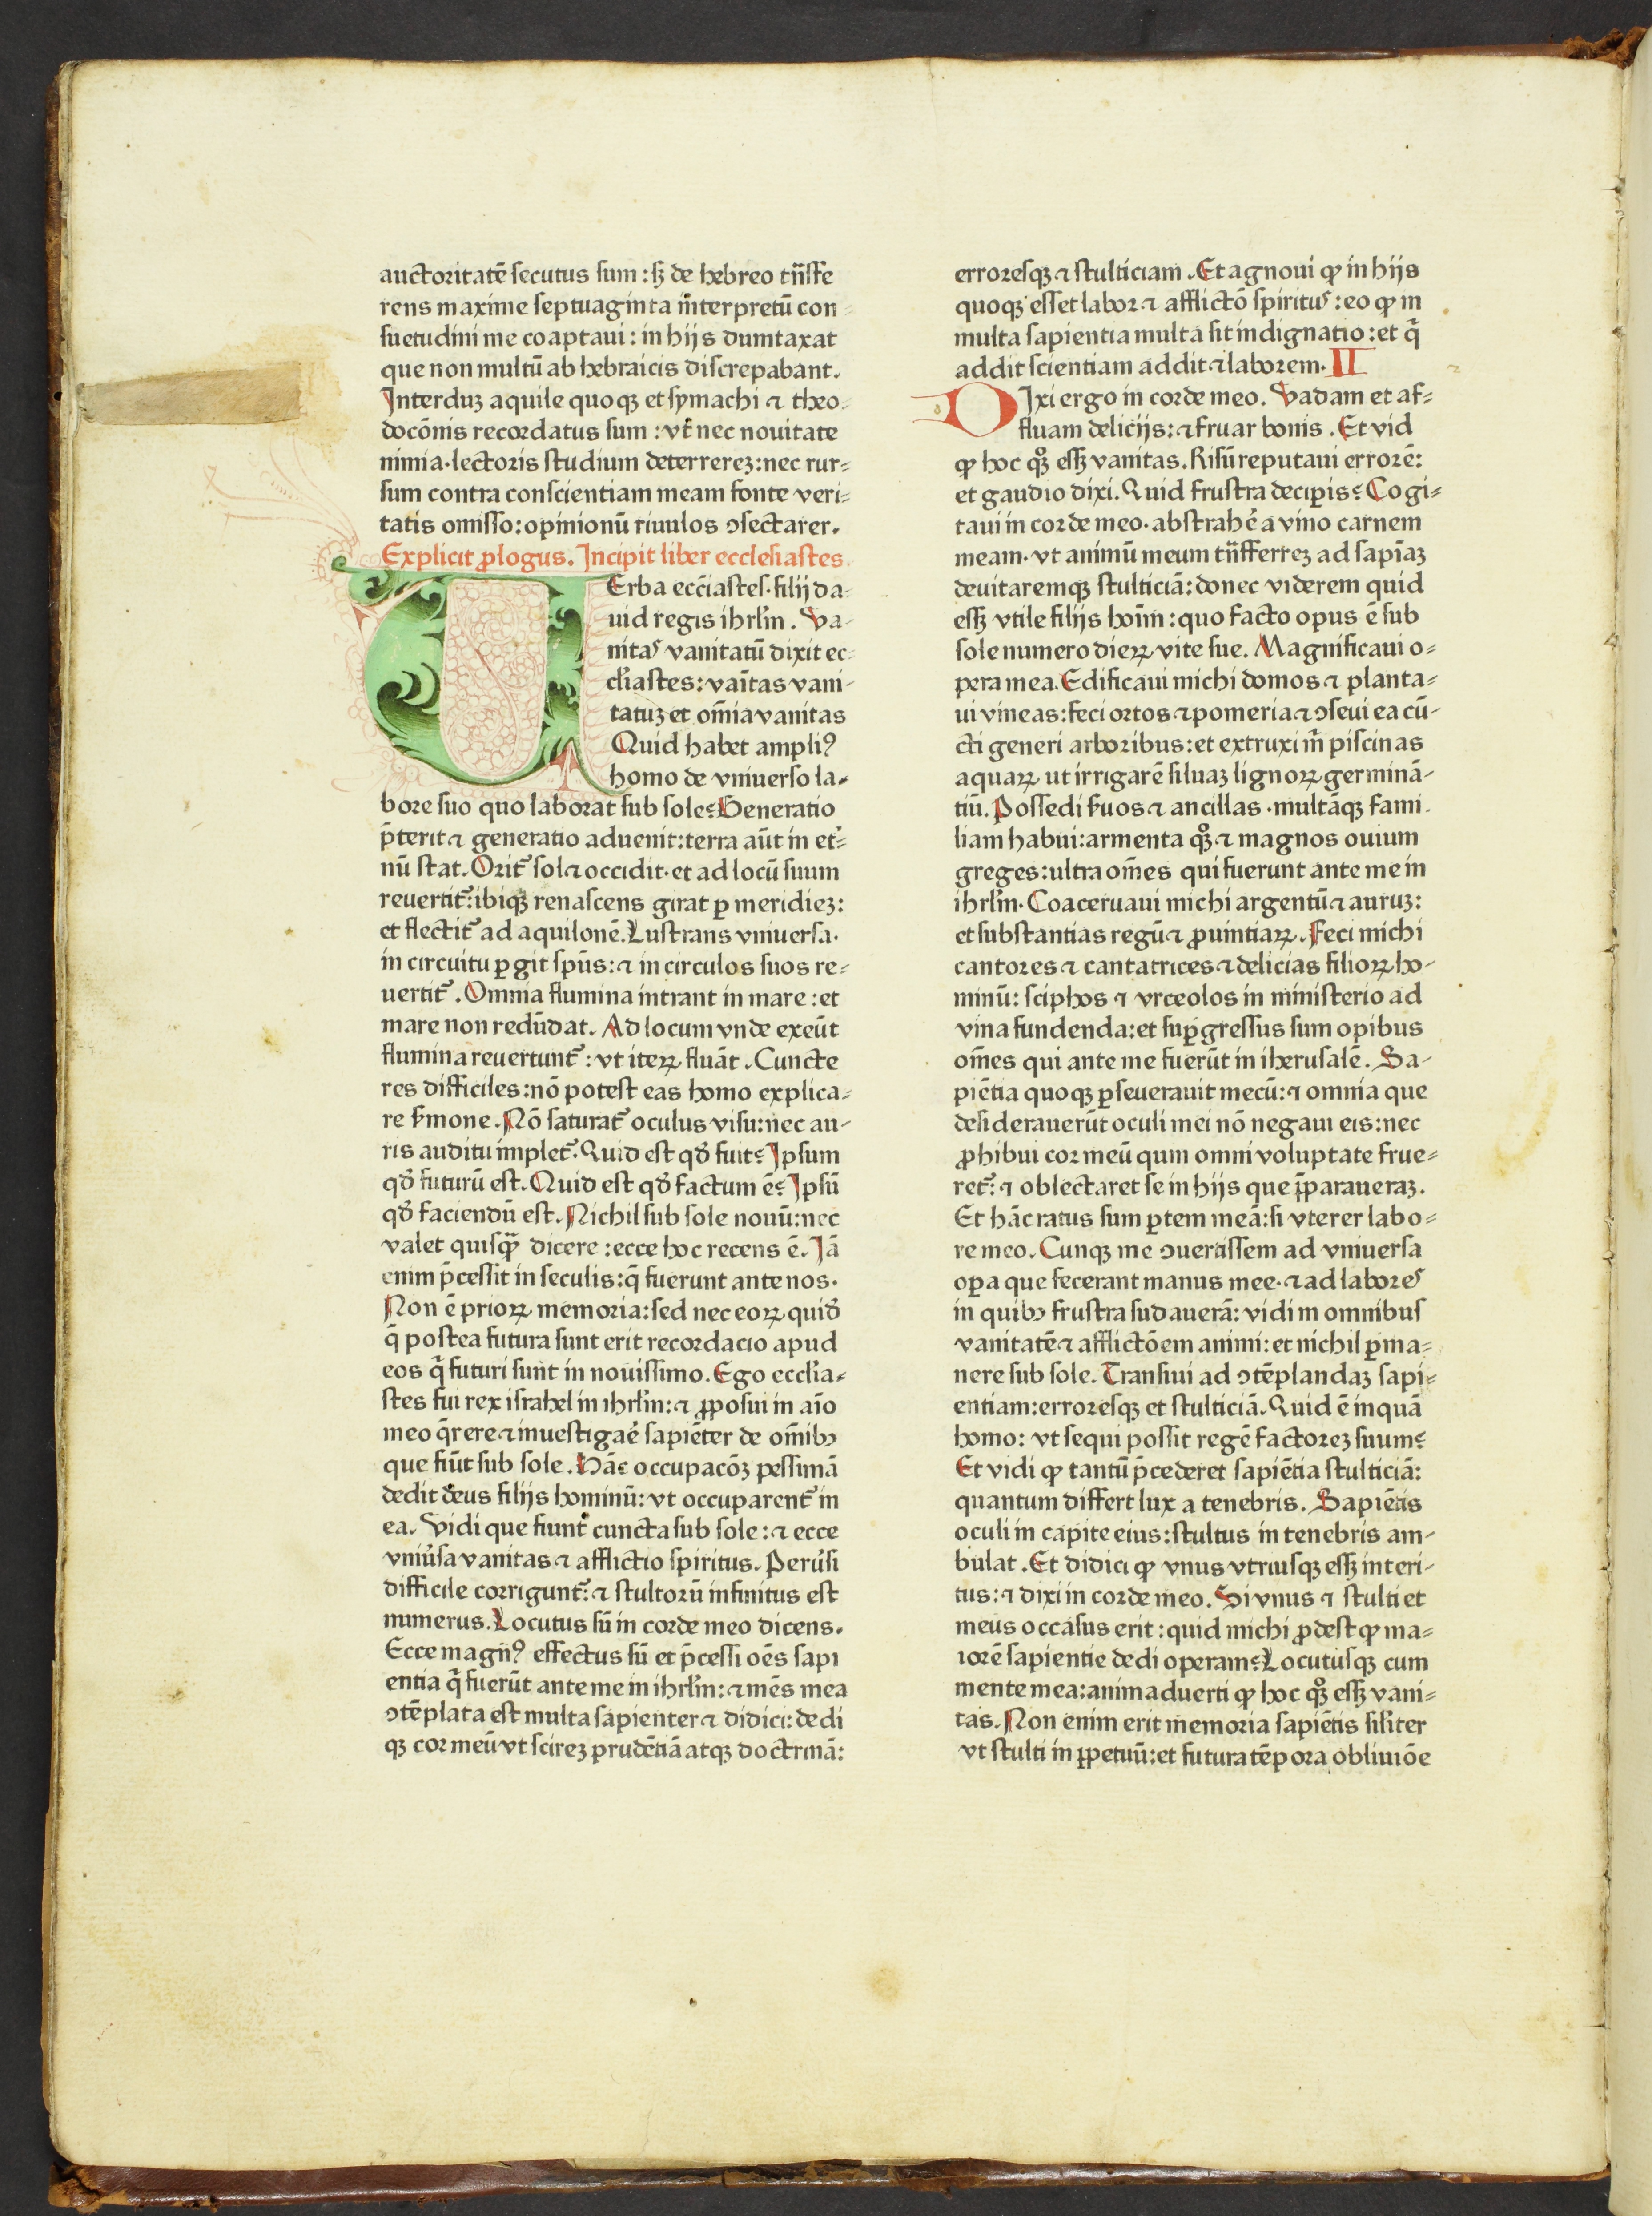 auctoritatē secutus sum : sꝫ de hebreo tn̄sfe
rens maxime septuaginta īnterpretū con-
suetudini me coaptaui : in hijs dumtaxat
que non multū ab hebraicis discrepabant.
Interduꝫ aquile quoqꝫ et symachi ⁊ theo-
docōnis recordatus sum : vt̄ nec nouitate
nimia·lectoris studium deterrereꝫ:nec rur-
sum contra conscientiam meam fonte veri-
tatis omisso:opinionū riuulos ↄsectarer.
Explicit ꝓlogus. Incipit liber ecclesiastes
UErba ecc̄iastes·filij da-
uid regis ihrl̄m . Va-
nitas vanitatū dixit ec-
cl̄iastes:vaītas vani-
tatuꝫ et om̄ia vanitas
Quid habet ampliꝰ
homo de vniuerso la-
bore suo quo laborat sub sole? Generatio
p̄terit ⁊ generatio aduenit:terra aūt in et̓-
nū stat. Orit᷑ sol ⁊ occidit·et ad locū suum
reuertit᷑:ibiqꝫ renascens girat ꝑ meridieꝫ:
et flectit᷑ ad aquilonē. Lustrans vniuersa·
in circuitu ꝑgit sp̄us:⁊ in circulos suos re-
uertit᷑ . Omnia flumina intrant in mare : et
mare non redūdat. Ad locum vnde exeūt
flumina reuertunt᷑ : vt iteꝝ fluāt . Cuncte
res difficiles:nō potest eas homo explica-
re ẜmone. Nō saturat᷑ oculus visu:nec au-
ris auditu implet᷑. Quid est qd̓ fuit? Ipsum
qd̓ futurū est. Quid est qd̓ factum ē? Ipsū
qd̓ faciendū est. Nichil sub sole nouū:nec
valet quisqꝫ̄ dicere : ecce hoc recens ē. Iā
enim p̄cessit in seculis:q̄ fuerunt ante nos·
Non ē prioꝝ memoria:sed nec eoꝝ quid̓
q̄ postea futura sunt erit recordacio apud
eos q̄ futuri sunt in nouissimo. Ego eccl̄ia-
stes fui rex israhel in ihrl̄m:⁊ ꝓposui in aīo
meo q̄rere ⁊ inuestigaē sapiēter de om̄ibꝫ
que fiūt sub sole. Hāc occupacōꝫ pessimā
dedit deus filijs hominū: vt occuparent᷑ in
ea. Vidi que fiunt cuncta sub sole : ⁊ ecce
vniu̓sa vanitas ⁊ afflictio spiritus. Peru̓si
difficile corrigunt᷑:⁊ stultorū infinitus est
numerus. Locutus sū in corde meo dicens.
Ecce magnꝰ effectus sū et p̄cessi oēs sapi
entia q̄ fuerūt ante me in ihrl̄m:⁊ mēs mea
ↄtēplata est multa sapienter ⁊ didici: dedi
qꝫ cor meū vt scireꝫ prudētiā atqꝫ doctrinā:
erroresqꝫ ⁊ stulticiam . Et agnoui ꝙ in hijs
quoqꝫ esset labor ⁊ afflictō spiritus : eo ꝙ in
multa sapientia multa sit indignatio : et q̄
addit scientiam addit ⁊ laborem. II
DIxi ergo in corde meo. Vadam et af-
fluam delicijs:⁊ fruar bonis . Et vid
ꝙ hoc qꝫ̊ essꝫ vanitas. Risū reputaui errorē:
et gaudio dixi. Quid frustra deciperis? Cogi-
taui in corde meo·abstrahē a vino carnem
meam· vt animū meum tn̄sfferreꝫ ad sapīaꝫ
deuitaremqꝫ stulticiā:donec viderem quid
essꝫ vtile filijs hoīm : quo facto opus ē sub
sole numero dieꝝ vite sue. Magnificaui o-
pera mea. Edificaui michi domos ⁊ planta-
ui vineas:feci ortos ⁊ pomeria ⁊ ↄseui ea cū-
cti generi arboribus:et extruxi m̄ piscinas
aquaꝝ ut irrigarē siluaꝫ lignoꝝ germinā-
tiū. Possedi ẜuos ⁊ ancillas ·multāqꝫ fami-
liam habui:armenta qꝫ̊ ⁊ magnos ouium
greges:ultra om̄es qui fuerunt ante me in
ihrl̄m. Coaceruaui michi argentū ⁊ auruꝫ:
et substantias regū ⁊ ꝓuintiaꝝ. Feci michi
cantores ⁊ cantatrices ⁊ delicias filioꝝ ho-
minū: sciphos ⁊ vrceolos in ministerio ad
vina fundenda:et suꝑgressus sum opibus
om̄es qui ante me fuerūt in iherusalē. Sa-
piētia quoqꝫ ꝑseuerauit mecū:⁊ omnia que
desiderauerūt oculi mei nō negaui eis:nec
ꝓhibui cor meū qum omni voluptate frue-
ret᷑: ⁊ oblectaret se in hijs que p̄paraueraꝫ.
Et hāc ratus sum ꝑtem meā:si vterer labo-
re meo. Cunqꝫ me ↄuertissem ad vniuersa
oꝑa que fecerant manus mee·⁊ ad labores
in quibꝫ frustra sudauerā: vidi in omnibus
vanitatē ⁊ afflictōem animi: et nichil ꝑma-
nere sub sole. Transiui ad ↄtēplandaꝫ sapi-
entiam:erroresqꝫ et stulticiā. Quid ē inquā
homo: vt sequi possit regē factoreꝫ suum?
Et vidi ꝙ tantū p̄cederet sapiētia stulticiā:
quantum differt lux a tenebris. Sapiētis
oculi in capite eius:stultus in tenebris am-
bulat . Et didici ꝙ vnus vtriusqꝫ essꝫ interi-
tus: ⁊ dixi in corde meo. Si vnus ⁊ stulti et
meus occasus erit : quid michi ꝓdest ꝙ ma-
iorē sapientie dedi operam? Locutusqꝫ cum
mente mea:animaduerti ꝙ hoc qꝫ̊ essꝫ vani-
tas. Non enim erit memoria sapiētis sil̓iter
vt stulti in ꝑpetuū:et futura tēpora obliuiōe